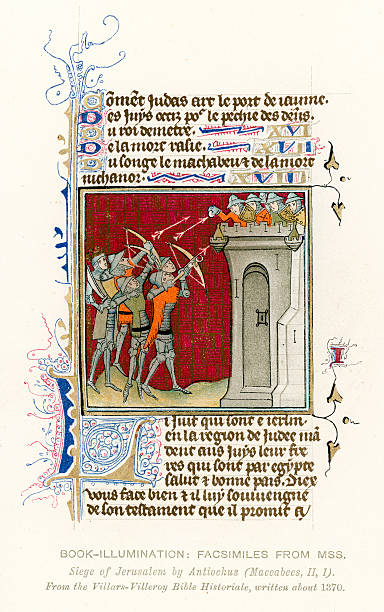 Coment Judas art le port de iaume.
Des Juys occiz por le pechie des deus.
Du roi demetre. XVI
De la mort rasie. XVI
Du songe le machabeu & de la mort
nichanor. XVII
I
Li Juif qui sont e ierlm
en la region de Judee mā
dent aus Juys leur fre
res qui sont par egypte
salut & bonne pais. Diex
vous face bien & il luy souviengne
de son testament que il promist a
BOOK-ILLUMINATION: FACSIMILES FROM MSS.
Siege of Jerusalem by Antiochus (Maccabees, II, I).
From the Villars-Villeroy Bible Historiale, written about 1370.